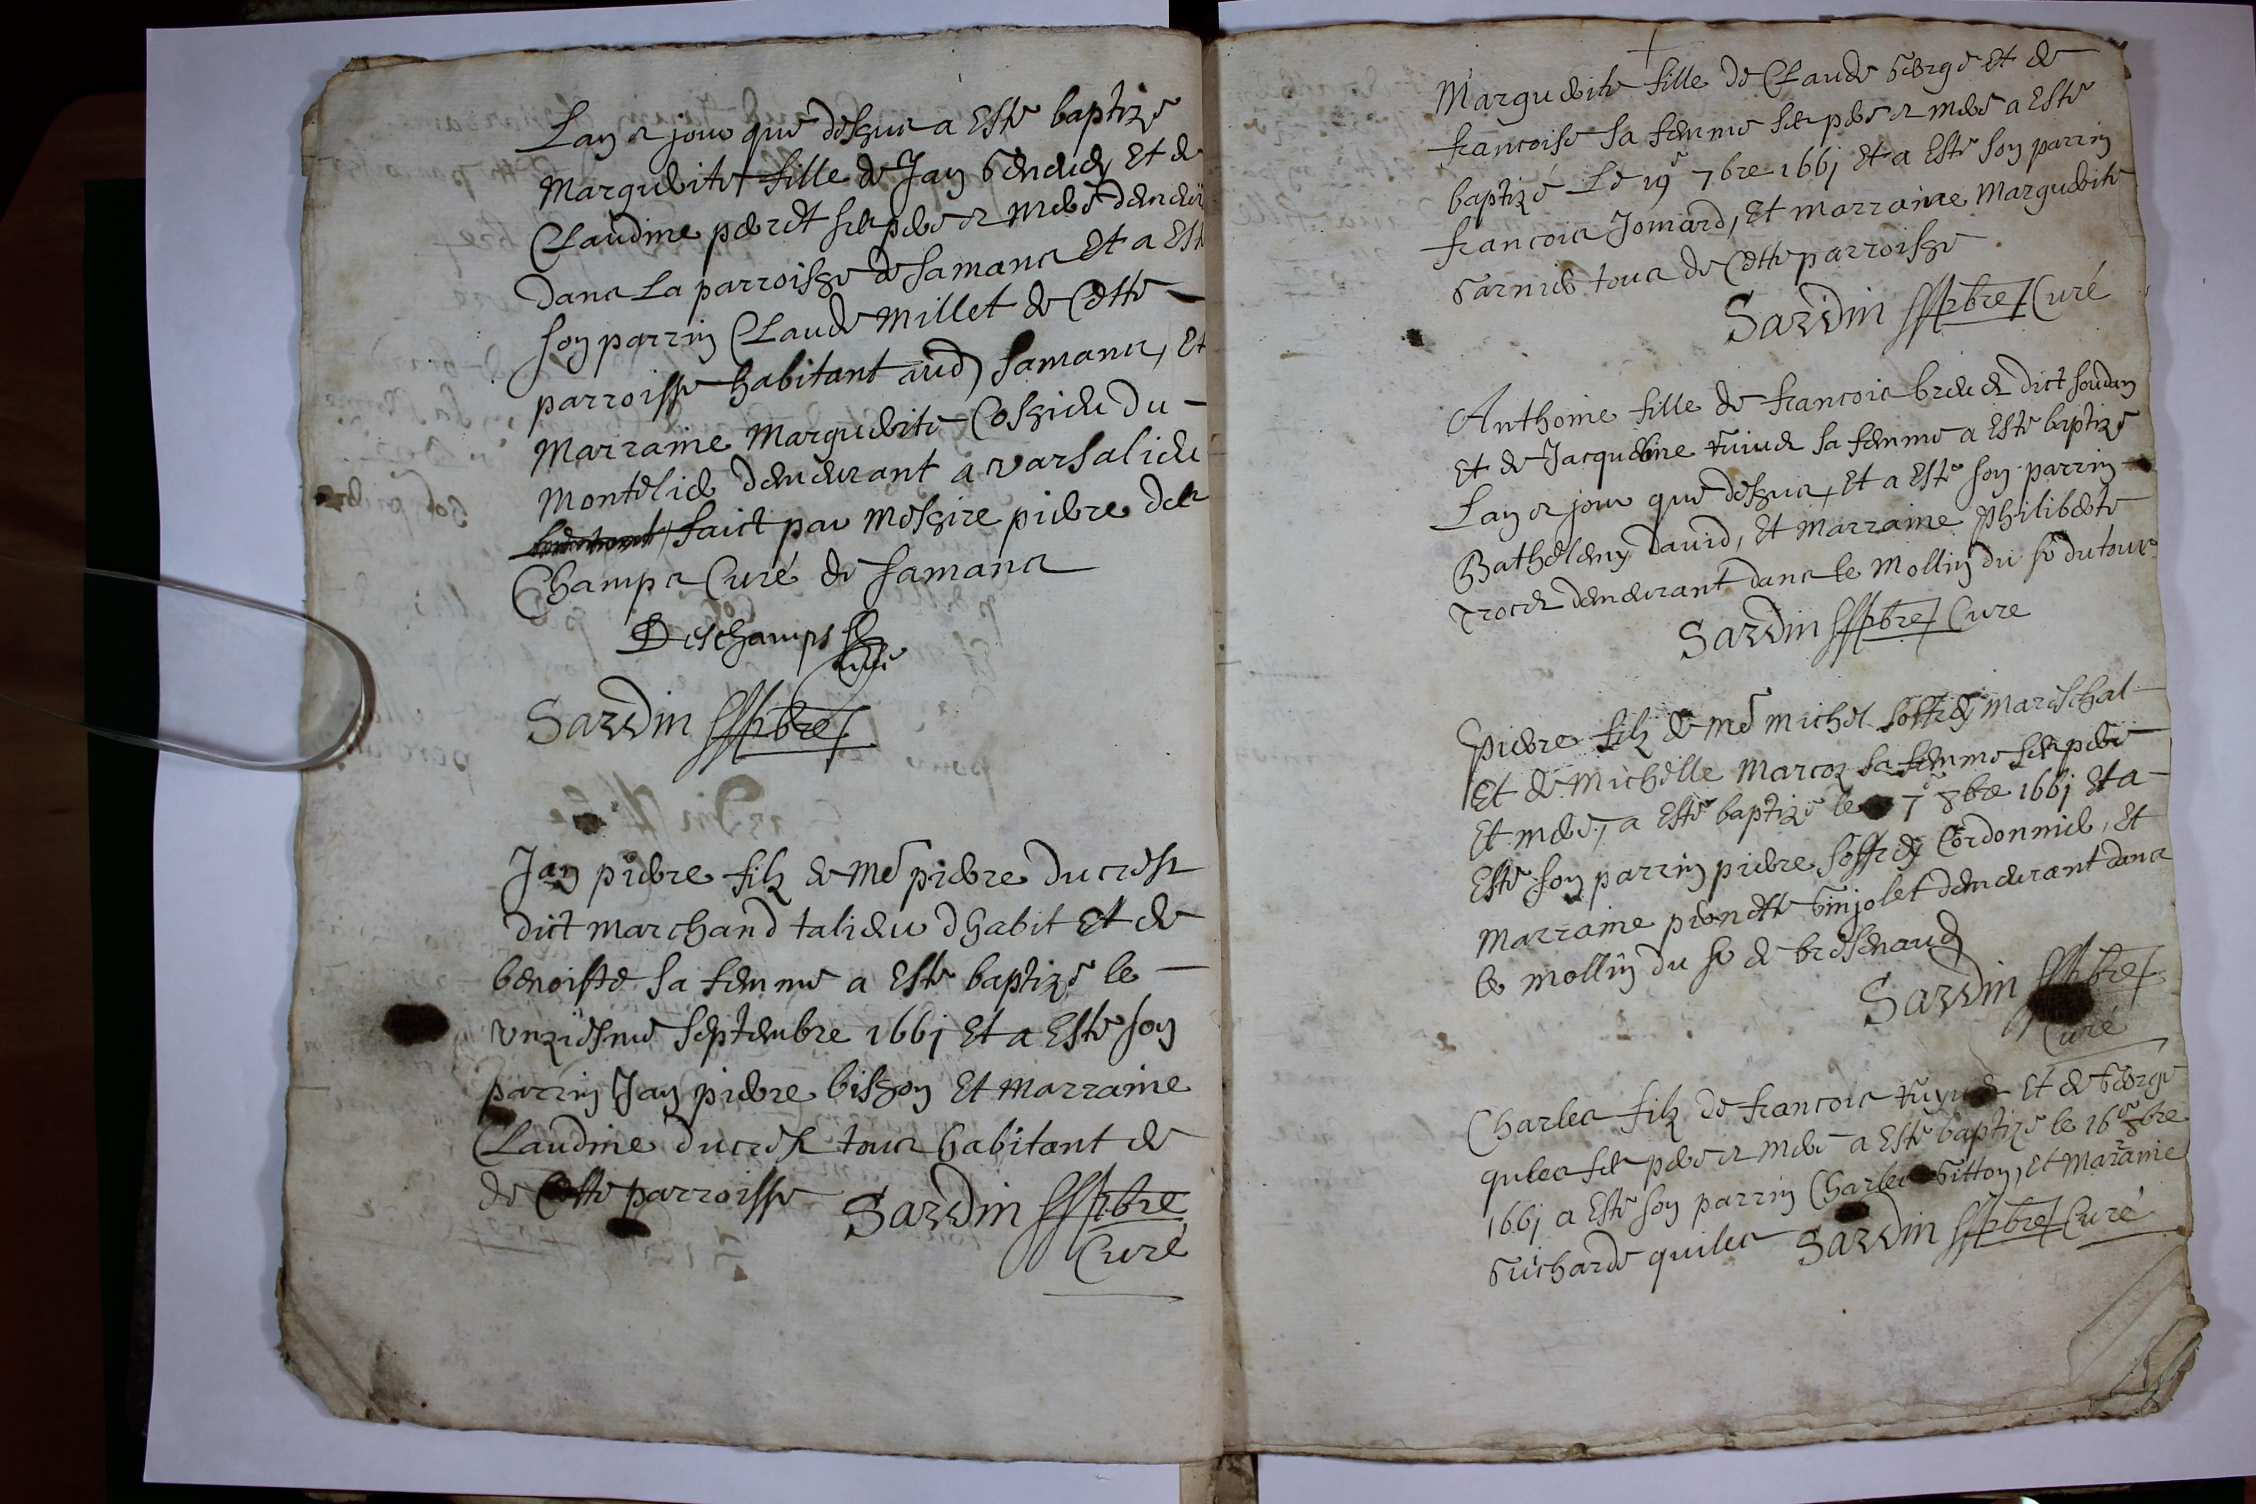 Lan & jour que dessus a Esté baptizé
Marguerite fille de Jan Et de
Claudine peret ses pere & mere
dans La parroisse de samans Et a Esté
son parrin Claude Millet de Cette
parroisse habitant aud samans, Et
Marraine Marguerite du
demeurant a
faict par Messire pierre des
Champs Curé de samans
Deschamps Curé
Sardin pbre
Jan pierre filz de Me pierre ducrest
dict marchand talieur dhabit Et de
benoiste sa femme a Esté baptizé le
unziesme septembre 1661 Et a Esté son
parrin Jan pierre bisson Et Marraine
Claudine ducrest tous habitant de
de Cette parroisse Sardin pbre
Curé
Marguerite fille de Claude George Et de
francoise sa femme ses pere & mere a Esté
baptizé Le 19e 7bre 1661 Et a Esté son parrin
francois Jomard, Et Marraine Marguerite
Garnier tous de Cette parroisse
Sardin pbre Curé
Anthoine fille de francois dict soudan
Et de Jacquemine sa femme a Esté baptizé
Lan & jour que dessus, Et a Esté son parrin
Bathelemy David, Et Marraine Philiberte
demeurant dans le Mollin du sr dutour
Sardin pbre Curé
Pierre filz de Me Michel soffrey Mareschal
Et de Michelle Marcoz sa femme ses pere
Et mere, a Esté baptizé le 7e 8bre 1661 Et a
Esté son parrin pierre soffrey Cordonnier, Et
Marraine demeurant dans
le mollin du sr de
Sardin pbre
Curé
Charles filz de francois Et de George
quiles ses pere & mere a Esté baptizé le 16e 8bre
1661 a Esté son parrin Charles Gitton, Et Marraine
Guicharde quiles Sardin pbre Curé